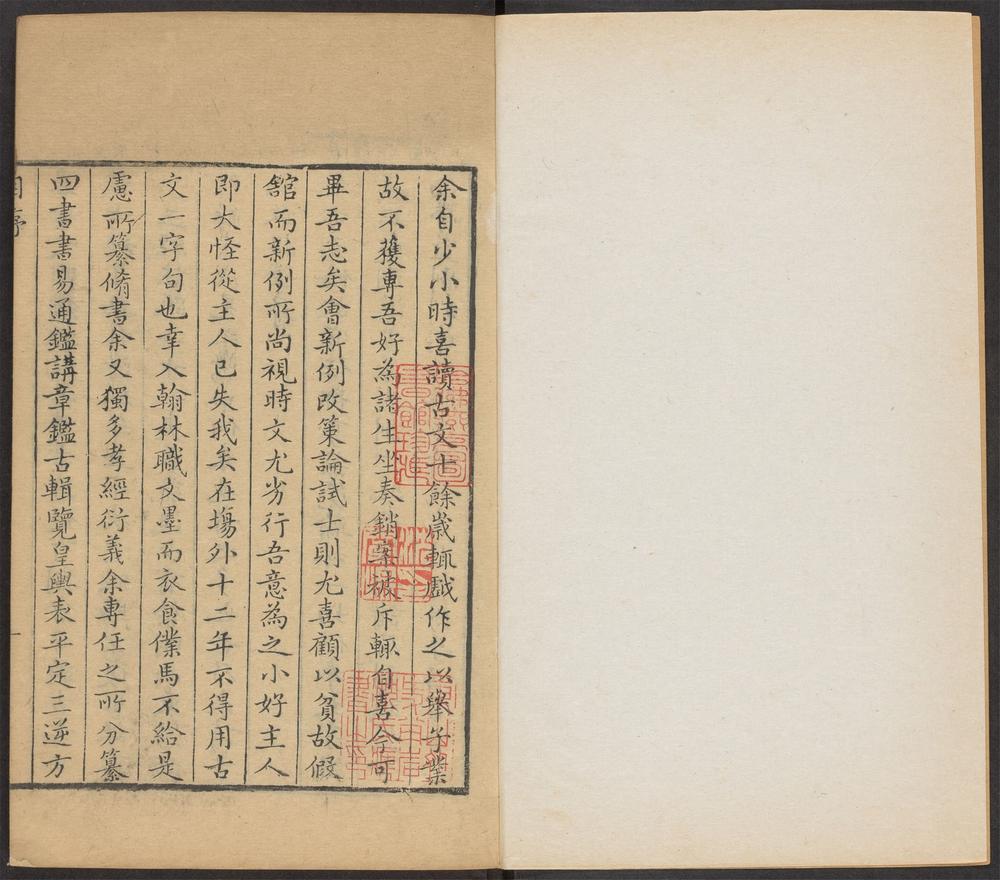 余自少小時喜讀古文十餘歲輒戲作之以舉子業
故不獲專吾好為諸生坐奏銷案被斥輒自喜今可
畢吾志矣會新例改策論試士則尤喜顧以貧故假
舘而新例所尚視時文尤劣行吾意為之小好主人
即大怪從主人已失我矣在塲外十二年不得用古
文一字句也幸入翰林職文墨而衣食僕馬不給是
慮所纂脩書余又獨多孝經衍義余專任之所分纂
四書書易通鑑講章鑑古輯覽皇輿表平定三逆方